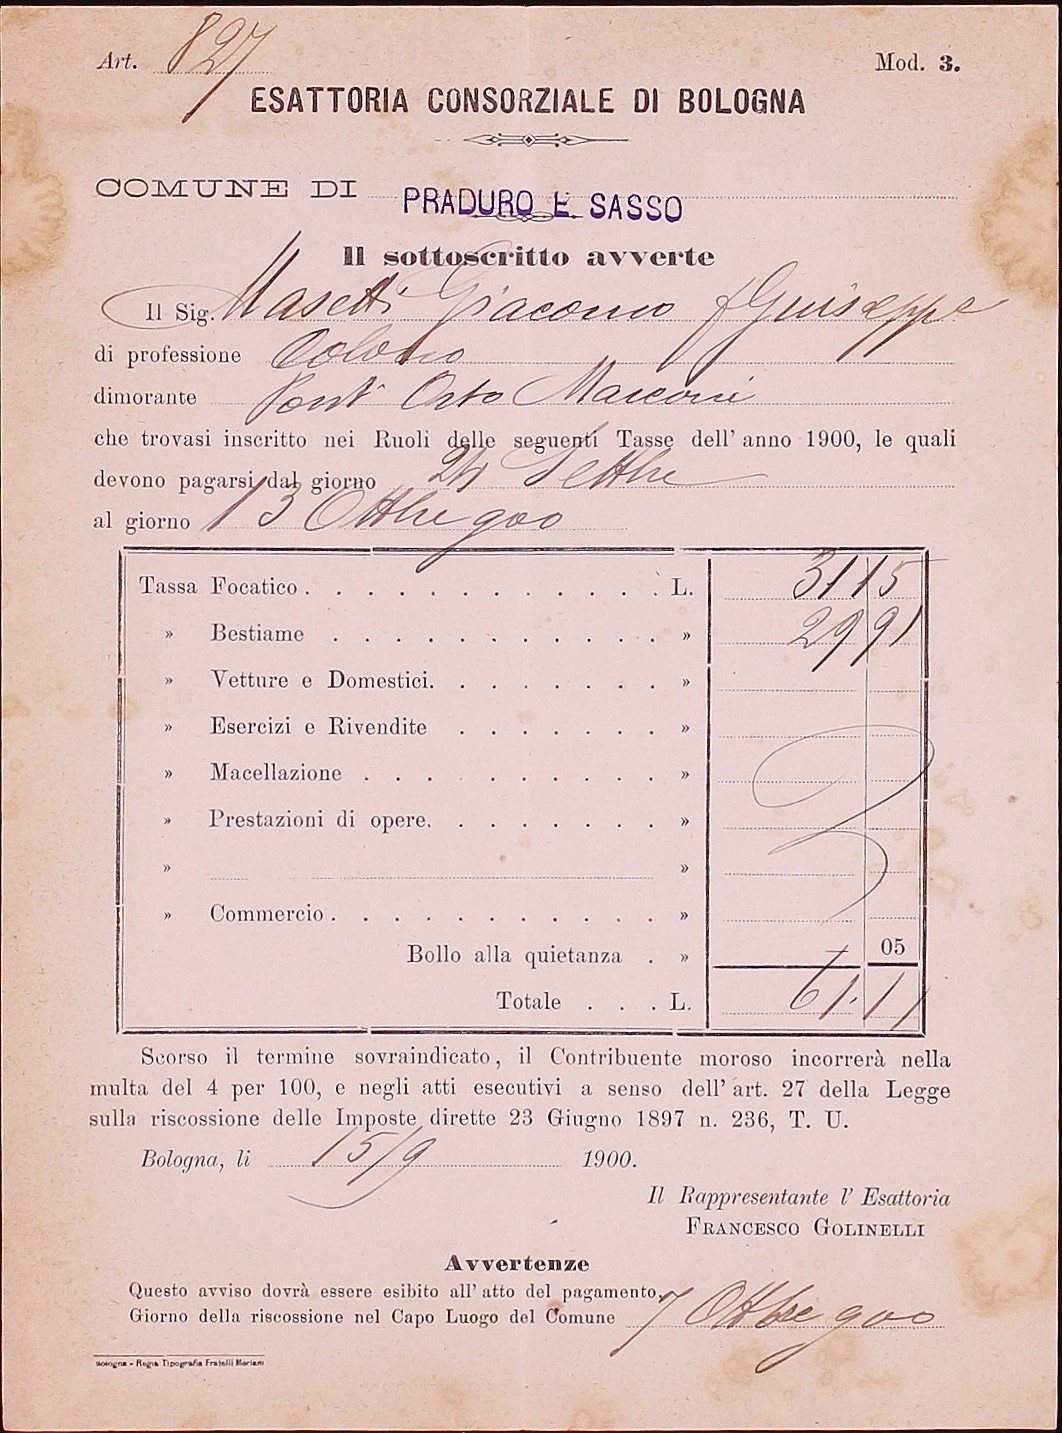 Art. 827
Mod. 3.
ESATTORIA CONSORZIALE DI BOLOGNA
COMUNE DI PRADURO E SASSO
Il sottoscritto avverte
Il Sig. Masetti Giacomo f Guiseppe
di professione Colono
dimorante Pont Orto Marconi
che trovasi inscritto nei Ruoli delle seguenti Tasse dell' anno 1900, le quali
devono pagarsi dal giorno 24 Settbre
al giorno 13 Ottbre 900
Tassa Focatico . . . . . . . . . . . . . L. 31 15
» Bestiame . . . . . . . . . . . . » 29 91
» Vetture e Domestici. . . . . . . . »
» Esercizi e Rivendite . . . . . . . »
» Macellazione . . . . . . . . . . »
» Prestazioni di opere. . . . . . . . »
» »
» Commercio . . . . . . . . . . . . »
Bollo alla quietanza . » 05
Totale . . . L. 61.11
Scorso il termine sovraindicato, il Contribuente moroso incorrerà nella
multa del 4 per 100, e negli atti esecutivi a senso dell' art. 27 della Legge
sulla riscossione delle Imposte dirette 23 Giugno 1897 n. 236, T. U.
Bologna, li 15/9 1900.
Il Rappresentante l' Esattoria
FRANCESCO GOLINELLI
Avvertenze
Questo avviso dovrà essere esibito all' atto del pagamento.
Giorno della riscossione nel Capo Luogo del Comune 7 Ottbre 900
Bologna - Regia Tipografia Fratelli Merlani